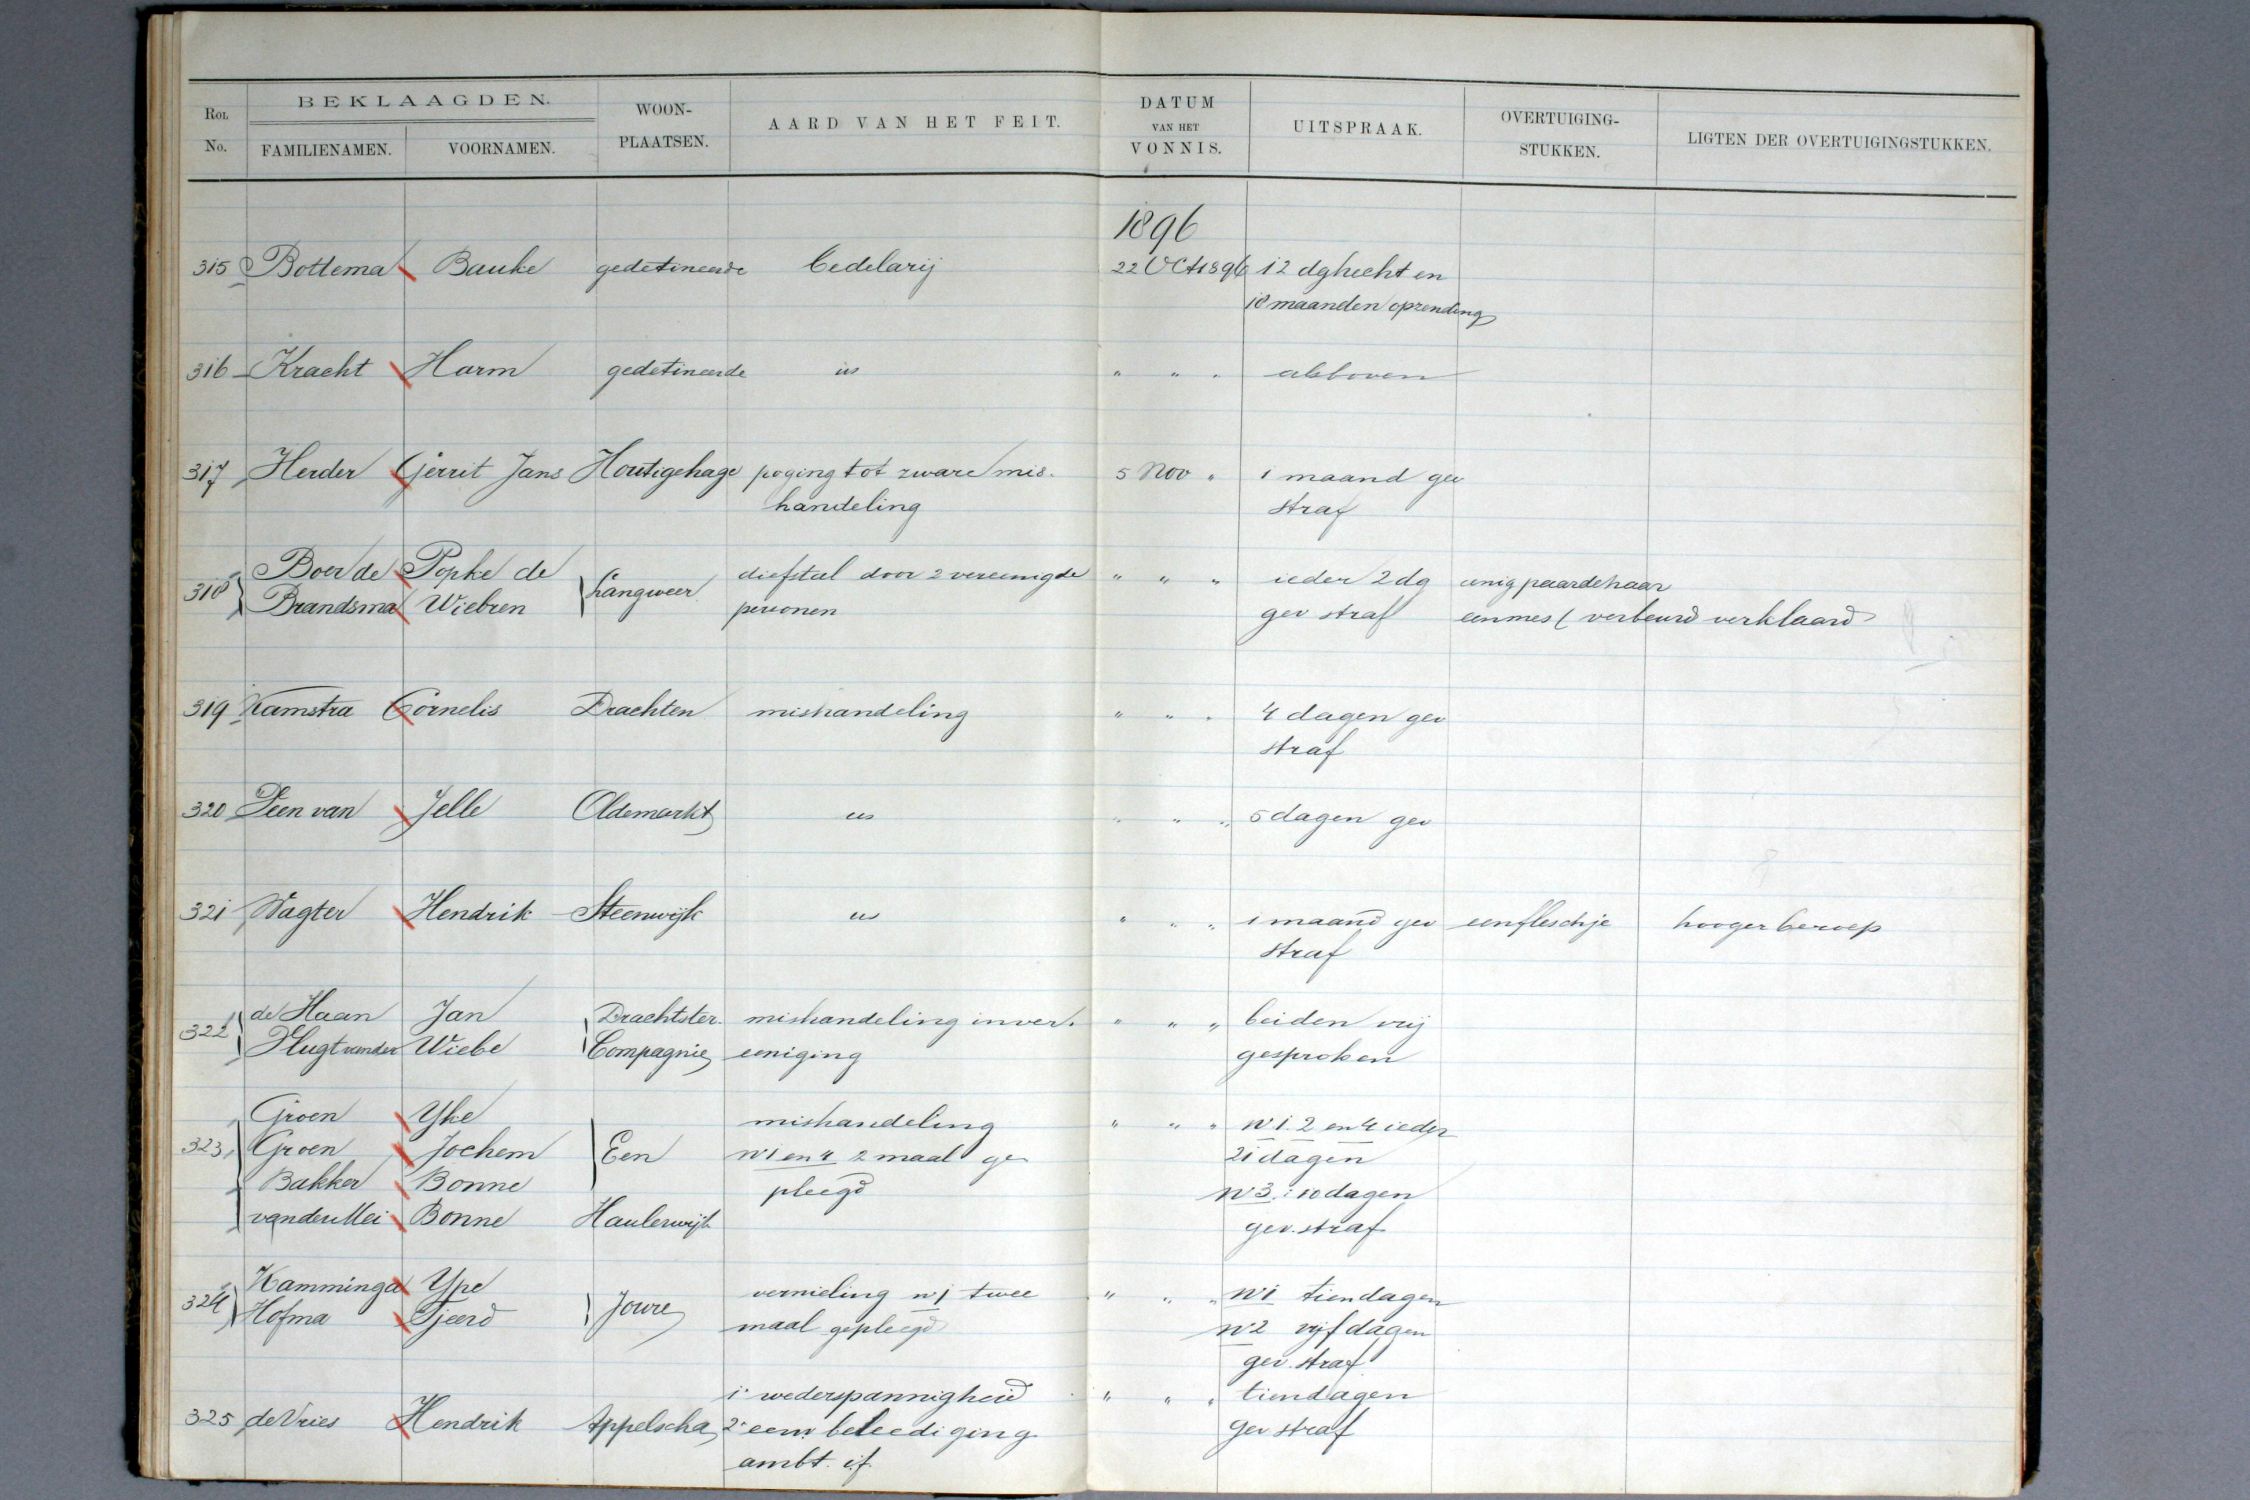 BEKLAAGDEN.
ROL No. FAMILIENAMEN. VOORNAMEN. WOON-PLAATSEN. AARD VAN HET FEIT. DATUM VAN HET VONNIS. UITSPRAAK. OVERTUIGING-STUKKEN. LIGTEN DER OVERTUIGINGSTUKKEN.
1896
315 Bottema Bauke gedetineerde bedelarij 22 Oct 1896 12 dg hecht en
10 maanden opzending
316 Kracht Harm gedetineerde us " " " alsboven
317 Herder Gerrit Jans Houtigehage poging tot zware mis-
handeling
5 Nov " 1 maand gev
straf
318 Boer de Popke de Langweer diefstal door 2 vereenigde " " " ieder 2 dg eenig paardehaar
Brandsma Wiebren personen gev straf een mes ( verbeurd verklaard
319 Kamstra Cornelis Drachten mishandeling " " " 4 dagen gev
straf
320 Veen van Jelle Oldemarkt us " " " 5 dagen gev
321 Wagter Hendrik Steenwijk us " " " 1 maand gev een fleschje hooger beroep
straf
322 de Haan Jan Drachtster mishandeling in ver- " " " beiden vrij
Vlugt vander Wiebe Compagnie eeniging gesproken
323 Groen Yke mishandeling " " " no 1. 2 en 4 ieder
Groen Jochem Een no 1 en 4 2 maal ge 21 dagen
Bakker Bonne pleegd no 3 : 10 dagen
van der Mei Bonne Haulerwijk gev. straf
324 Kamminga Ype Joure vernieling no 1 twee " " " no 1 tien dagen
Hofma Sjeerd maal gepleegd no 2 vijf dagen
gev. straf
1o wederspannigheid " " " tien dagen
325 de Vries Hendrik Appelscha 2o eenv beleediging gev straf
ambt. i.f.